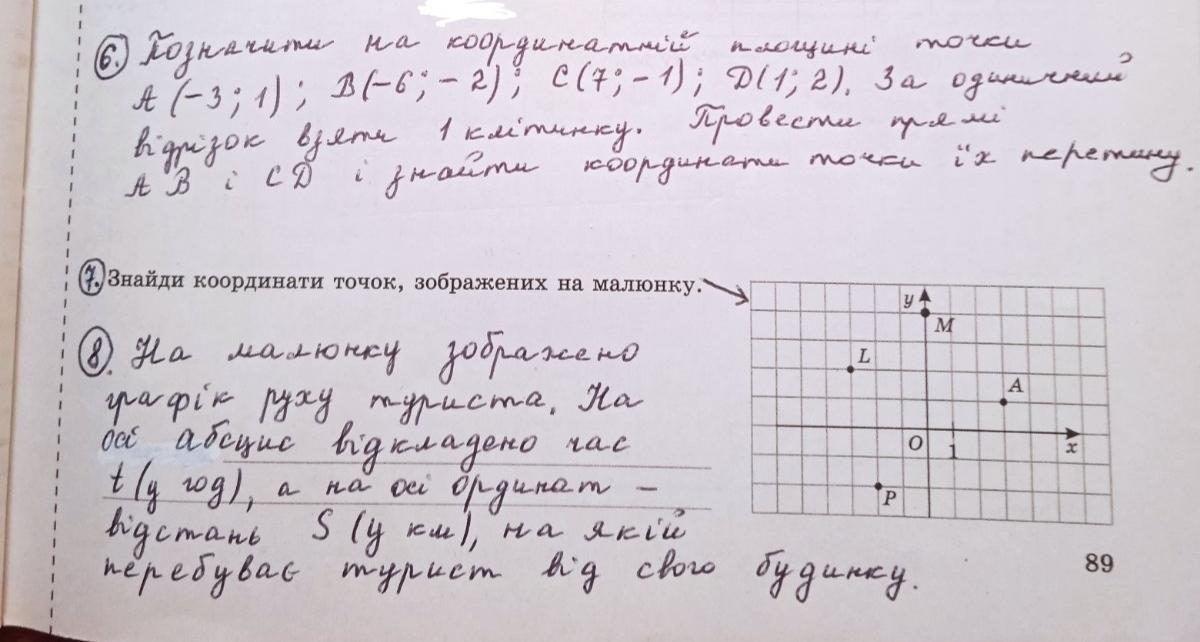 6. Позначити на координатній площині точки
A (-3; 1); B(-6; -2); C(7; -1); D(1; 2). За одиничний
відрізок взяти 1 клітинку. Провести прямі
AB і CD і знайти координати точки їх перетину.
7. Знайди координати точок, зображених на малюнку.
y
M
L
A
O
1
x
P
8. На малюнку зображено
графік руху туриста. На
осі абсцис відкладено час
t (у год), а на осі ординат –
відстань S (у км), на якій
перебуває турист від свого будинку.
89